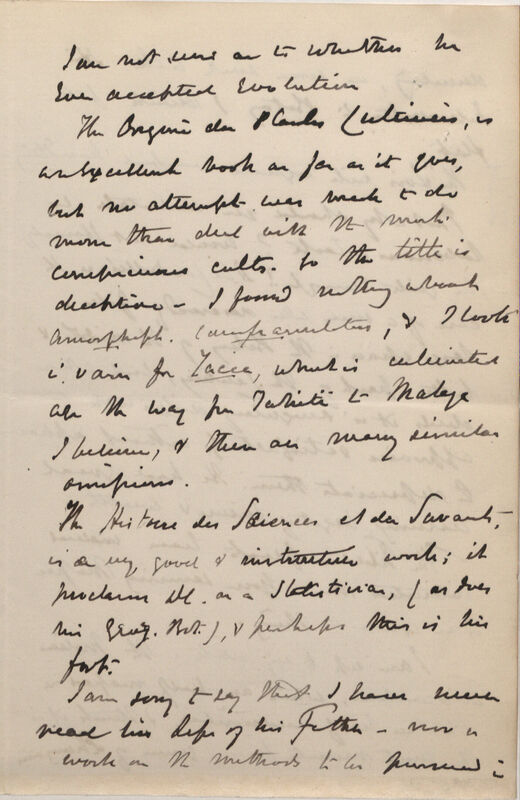 I am not sure as to whether he
ever accepted Evolution
The Origine des Plantes Cultivées, is
an excellent book as far as it goes,
but no attempt was made to do
more than deal with the most
conspicuous cults. so the title is
deceptive – I found nothing about
Amorphoph. campanulatus, & I look
i. vain for Tacca, which is cultivated
all the way from Tahiti to Malaya
I believe, & there are many similar
omissions.
The Histoire des Sciences et des Savants,
is a very good & instructive work; it
proclaims DC. as a Statistician, (as does
his Geog. Bot.), & perhaps this is his
fort.
I am sorry to say that I have never
read his Life of his Father – nor a
work on the methods to be pursued i